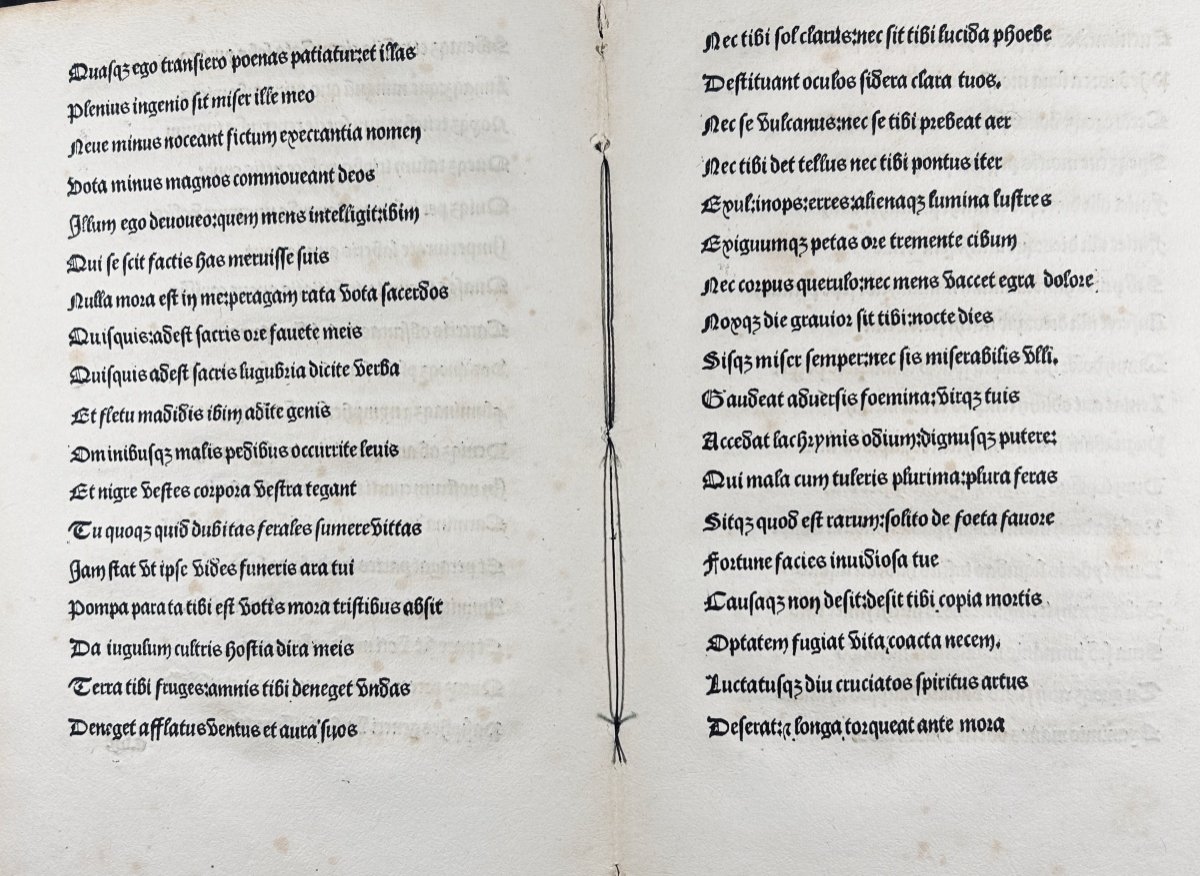 Quasqꝫ ego transiero poenas patiatur:et illas
Plenius ingenio sit miser ille meo
Neue minus noceant fictum execrantia nomen
Vota minus magnos commoueant deos
Illum ego deuoueo:quem mens intelligit:ibim
Qui se scit factis has meruisse suis
Nulla mora est in me:peragam rata vota sacerdos
Quisquis:adest sacris ore fauete meis
Quisquis adest sacris lugubria dicite verba
Et fletu madidis ibim adite genis
Ominibusqꝫ malis pedibus occurrite leuis
Et nigre vestes corpora vestra tegant
Tu quoqꝫ quid dubitas ferales sumere vittas
Jam stat vt ipse vides funeris ara tui
Pompa parata tibi est votis mora tristibus absit
Da iugulum cultris hostia dira meis
Terra tibi fruges:amnis tibi deneget vndas
Deneget afflatus ventus et aura suos
Nec tibi sol clarus:nec sit tibi lucida phoebe
Destituant oculos sidera clara tuos.
Nec se vulcanus:nec se tibi prebeat aer
Nec tibi det tellus nec tibi pontus iter
Exul:inops:erres:alienaqꝫ lumina lustres
Exiguumqꝫ petas ore tremente cibum
Nec corpus querulo:nec mens vaccet egra dolore
Noxqꝫ die grauior sit tibi:nocte dies
Sisqꝫ miser semper:nec sis miserabilis vlli.
Gaudeat aduersis foemina:virqꝫ tuis
Accedat lachrymis odium:dignusqꝫ putere:
Qui mala cum tuleris plurima:plura feras
Sitqꝫ quod est rarum:solito defoeta fauore
Fortune facies inuidiosa tue
Causaqꝫ non desit:desit tibi copia mortis
Optatem fugiat vita coacta necem.
Luctatusqꝫ diu cruciatos spiritus artus
Deserat:⁊ longa torqueat ante mora